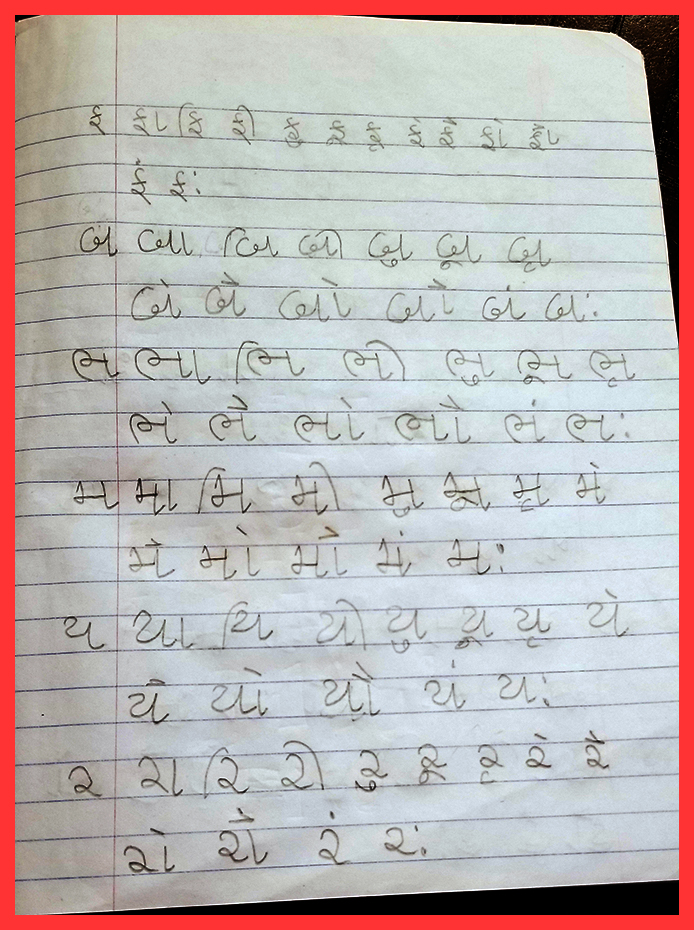 ફ ફા ફિ ફી ફુ ફૂ ફૃ ફે ફૈ ફો ફૌ
ફં ફઃ
બ બા બિ બી બુ બૂ બૃ
બે બૈ બો બૌ બં બઃ
ભ ભા ભિ ભી ભુ ભૂ ભૃ
ભે ભૈ ભો ભૌ ભં ભઃ
મ મા મિ મી મુ મૂ મૃ મે
મૈ મો મૌ મં મઃ
ય યા યિ યી યુ યૂ યૃ યે
યૈ યો યૌ યં યઃ
ર રા રિ રી રુ રૂ રૃ રે રૈ
રો રૌ રં રઃ